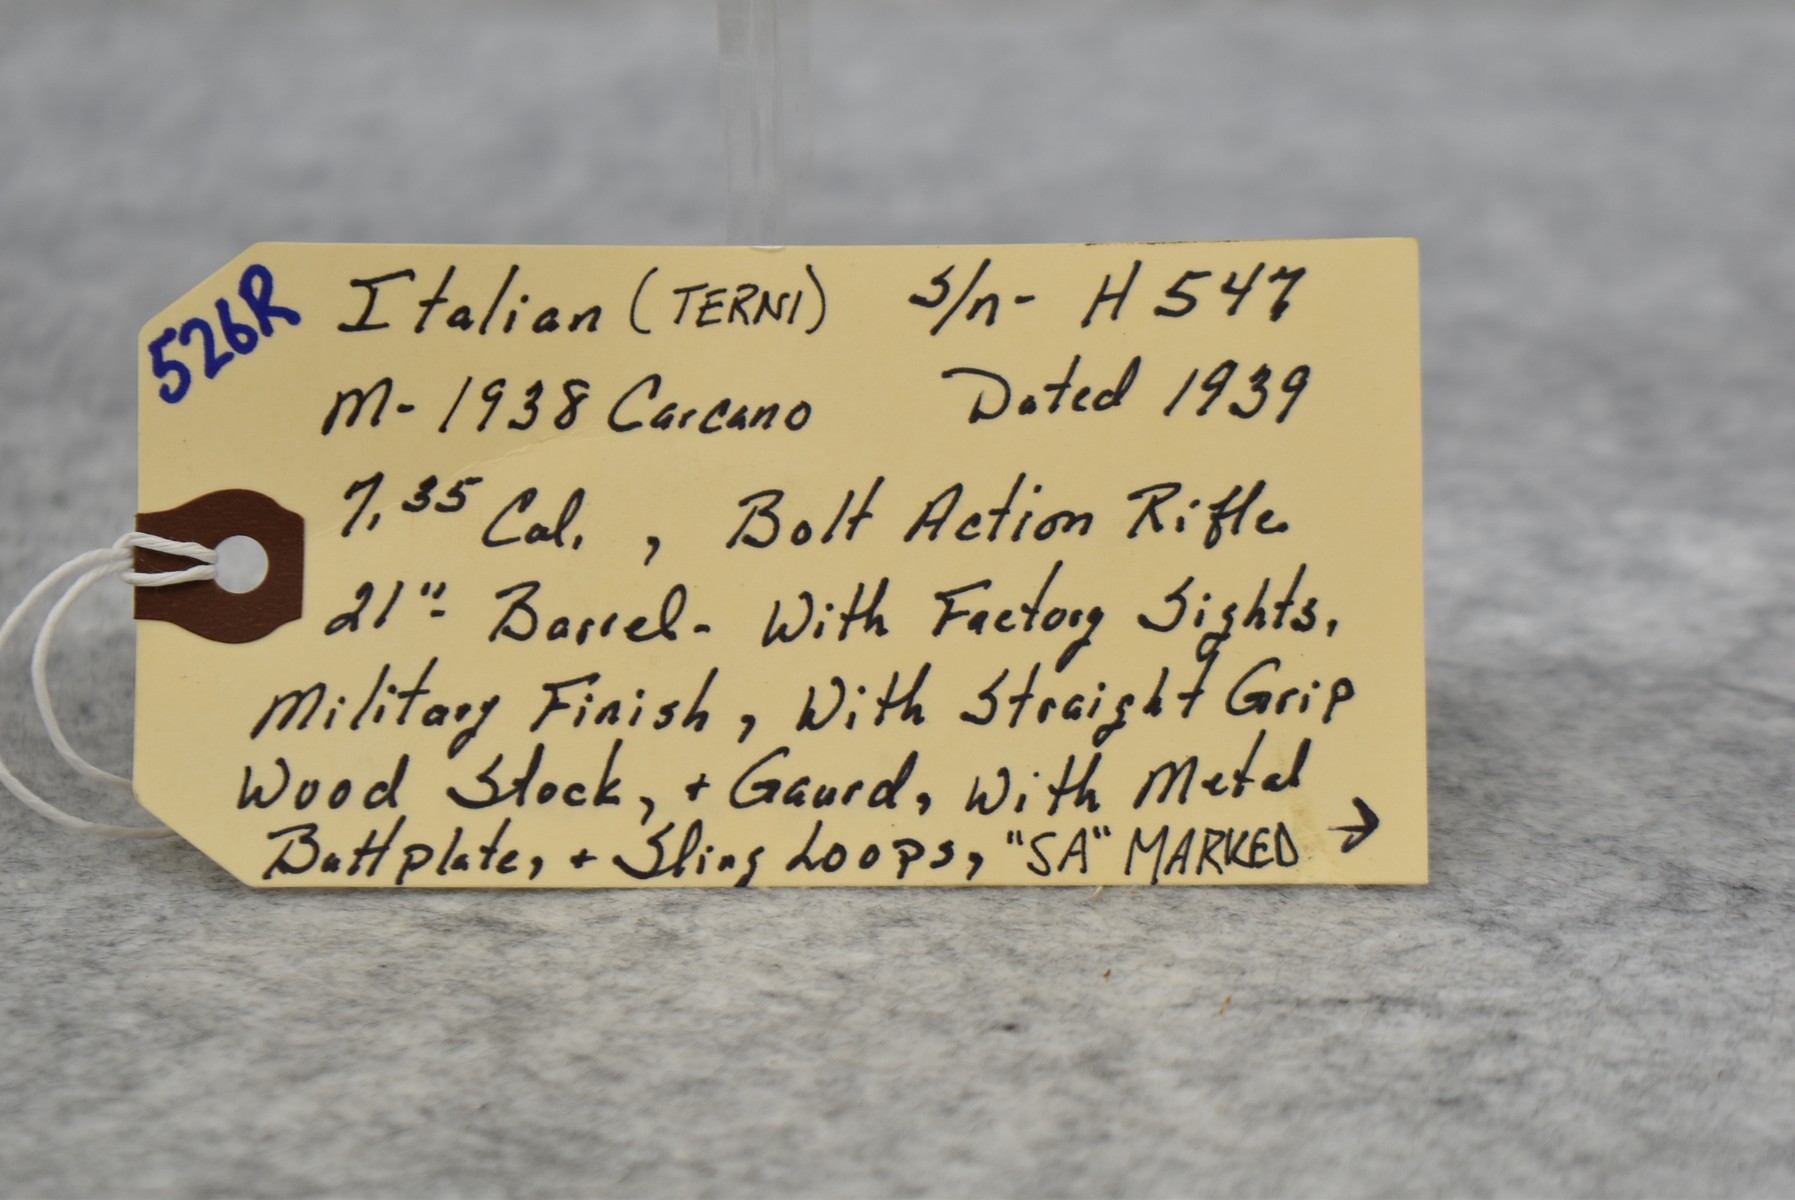 526R
Italian (TERNI) S/n- H547
M-1938 Carcano Dated 1939
7.35 Cal., Bolt Action Rifle
21"- Barrel- With Factory Sights,
Military Finish, With Straight Grip
Wood Stock, + Gaurd, With Metal
Buttplate, + Sling Loops, "SA" MARKED →